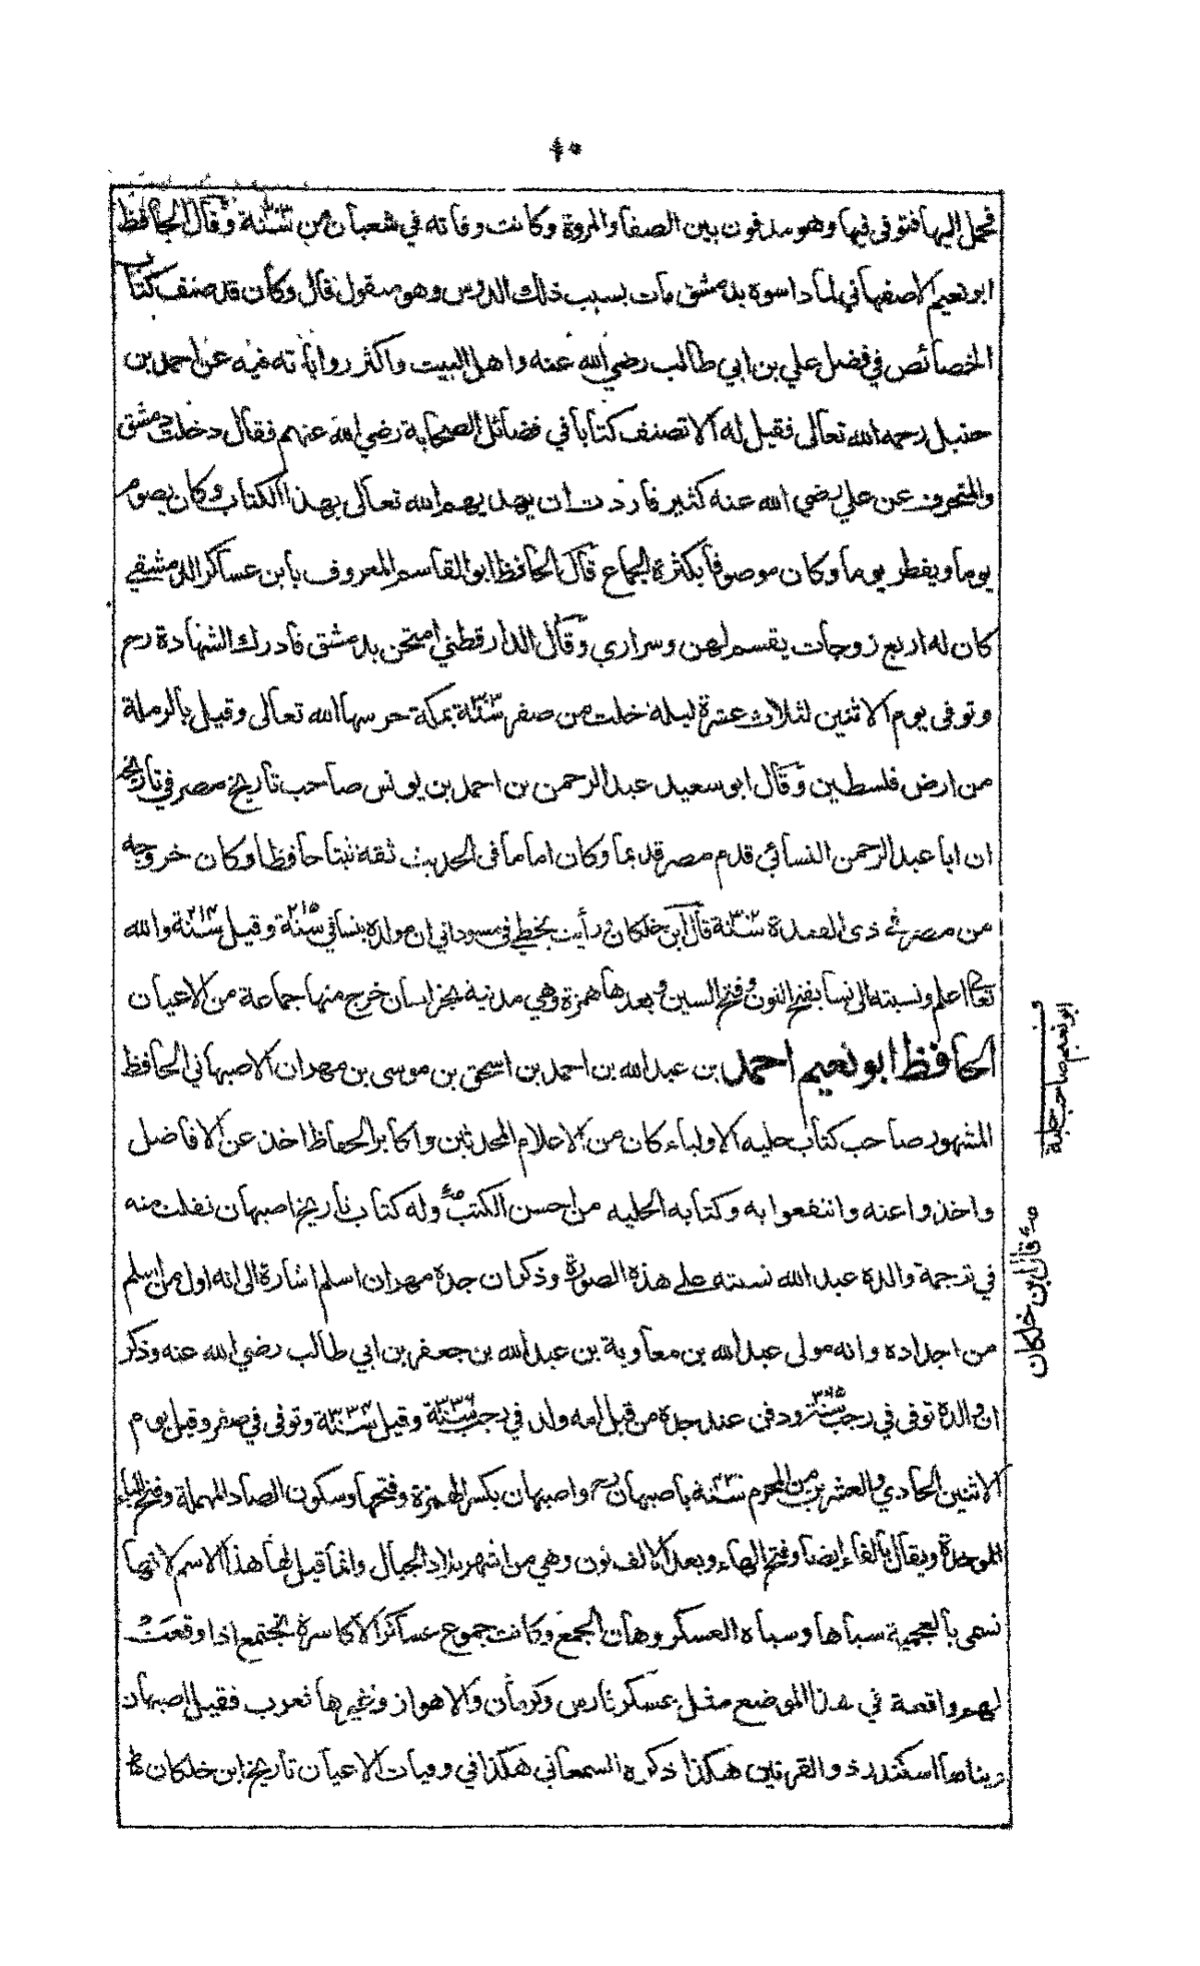 ٤٠
فحمل اليها فتوفى فيها وهو مدفون بين الصفا والمروة وكانت وفاته في شعبان من سنة ٣٠٣ وقال الحافظ
ابو نعيم الاصفهاني لما داسوه بدمشق مات بسبب ذلك الدوس وهو منقول قال وكان قد صنف كتاب
الخصائص في فضل علي بن ابي طالب رضي الله عنه واهل البيت واكثر رواياته فيه عن احمد بن
حنبل رحمه الله تعالى فقيل له الا تصنف كتابا في فضائل الصحابة رضي الله عنهم فقال دخلت دمشق
والمنحرف عن علي رضي الله عنه كثير فاردت ان يهديهم الله تعالى بهذا الكتاب وكان يصوم
يوما ويفطر يوما وكان موصوفا بكثرة الجماع قال الحافظ ابو القاسم المعروف بابن عساكر الدمشقي
كان له اربع زوجات يقسم لهن وسراري وقال الدارقطني امتحن بدمشق فادرك الشهادة رح
وتوفى يوم الاثنين لثلاث عشرة ليلة خلت من صفر سنة ٣٠٣ بمكة حرسها الله تعالى وقيل بالرملة
من ارض فلسطين وقال ابو سعيد عبد الرحمن بن احمد بن يونس صاحب تاريخ مصر في تاريخه
ان ابا عبد الرحمن النسائي قدم مصر قديما وكان اماما فى الحديث ثقة ثبتا حافظا وكان خروجه
من مصر في ذى القعدة سنة ٣٠٢ قال ابن خلكان رأيت بخطي في مسوداتي ان مولده بنسا في سنة ٢١٥ وقيل سنة ٢١٤ والله
تعالى اعلم ونسبته الى نسا بفتح النون وفتح السين وبعدها همزة وهي مدنية بخراسان خرج منها جماعة من الاعيان
الحافظ ابو نعيم احمد بن عبد الله بن احمد بن اسحق بن موسى بن مهران الاصبهاني الحافظ
المشهور صاحب كتاب حلية الاولياء كان من الاعلام المحدثين واكابر الحفاظ اخذ عن الافاضل
واخذوا عنه وانتفعوا به وكتابه الحليه من احسن الكتب وله كتاب تاريخ اصبهان نقلت منه
في ترجمة والده عبد الله نسبته على هذه الصورة وذكر ان جده مهران اسلم اشارة الى انه اول من اسلم
من اجداده وانه مولى عبد الله بن معاوية بن عبد الله بن جعفر بن ابي طالب رضي الله عنه وذكر
ان والده توفى في رجب سنة ٣٦٥ ودفن عند جده من قبل امه ولد في رجب سنة ٣٣٦ وقيل سنة ٣٣٤ وتوفى في صفر وقيل يوم
الاثنين الحادي والعشرين من المحرم سنة ٤٣٠ باصبهان رح واصبهان بكسر الهمزة وفتحها وسكون الصاد المهملة وفتح الباء
الموحدة ويقال بالفاء ايضا وفتح الهاء وبعد الالف نون وهي من اشهر بلاد الجبال وانما قيل لها هذا الاسم لانها
تسمى بالعجمية سباهان وسباه العسكر وهان الجمع وكانت جموع عساكر الاكاسرة تجتمع اذا وقعت
لهم واقعة في هذا الموضع مثل عسكر فارس وكرمان والاهواز وغيرها فعرب فقيل اصبهان
وبناها اسكندر ذو القرنين هكذا ذكره السمعاني هكذا في وفيات الاعيان تاريخ ابن خلكان
ابو نعيم صاحب حلية
قال ابن خلكان